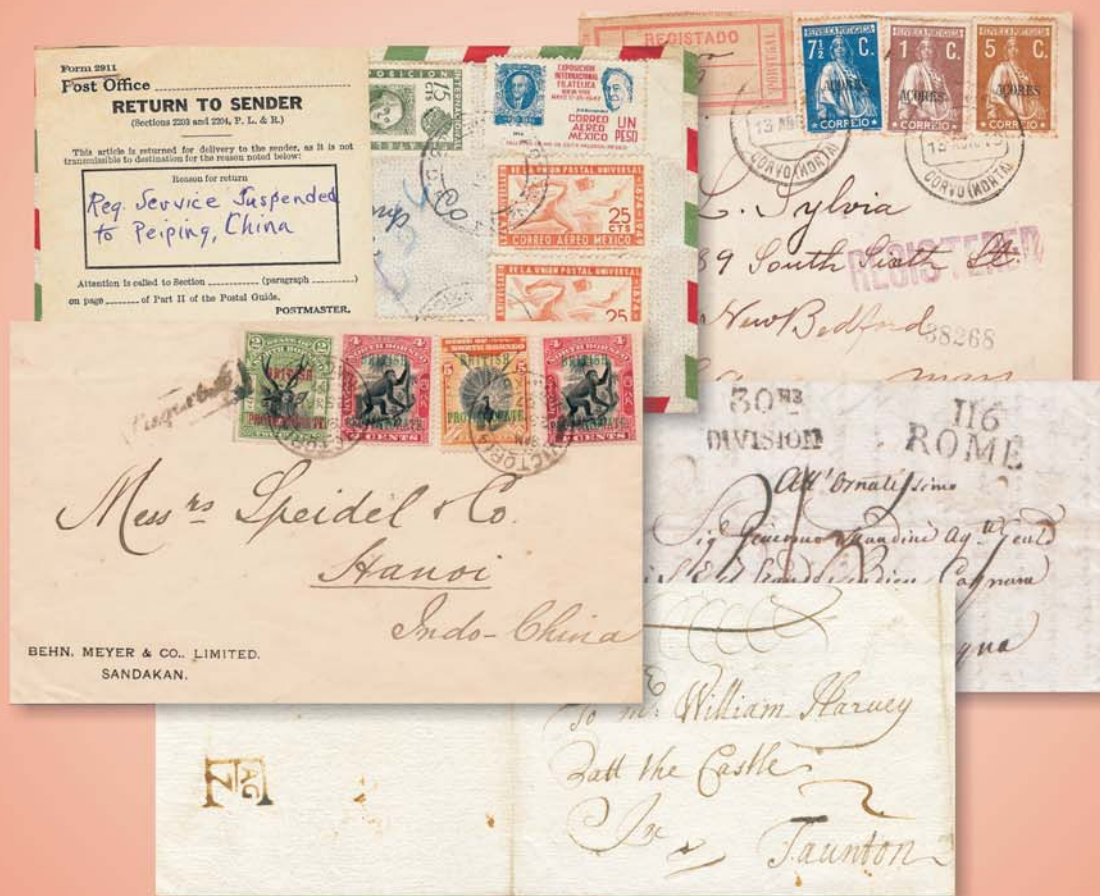 Form 2911
Post Office
RETURN TO SENDER
(Sections 2203 and 2204, P. L. & R.)
This article is returned for delivery to the sender, as it is not
transmissible to destination for the reason noted below:
Reason for return
Reg. Service Suspended
to Peiping, China
Attention is called to Section (paragraph )
on page of Part II of the Postal Guide.
POSTMASTER.
15
CTS
EXPOSICION
INTERNACIONAL
FILATELICA
CORREO
AEREO UN
MEXICO PESO
UNION POSTAL UNIVERSAL
25
CTS
CORREO AEREO MEXICO
DE LA UNION POSTAL UNIVERSAL
25
REGISTADO
PORTUGAL
REPUBLICA PORTUGUESA
7½ C.
AÇORES
CORREIO
REPUBLICA PORTUGUESA
1 C.
AÇORES
CORREIO
REPUBLICA PORTUGUESA
5 C.
AÇORES
CORREIO
CORVO (HORTA)
CORVO (HORTA)
L. Sylvia
89 South Sixth St.
REGISTERED
New Bedford
38268
Mass
2
BRITISH
PROTECTORATE
4
BRITISH
PROTECTORATE
CENTS
STATE OF
NORTH BORNEO
BRITISH
5
PROTECTORATE
4
BRITISH
PROTECTORATE
CENTS
VICTORIA
Messrs Speidel & Co.
Hanoi
Indo-China
BEHN, MEYER & CO., LIMITED.
SANDAKAN.
30 DIVISION
116
ROME
All' Ornatissimo
To Mr William Harvey
att the Castle
In
Taunton